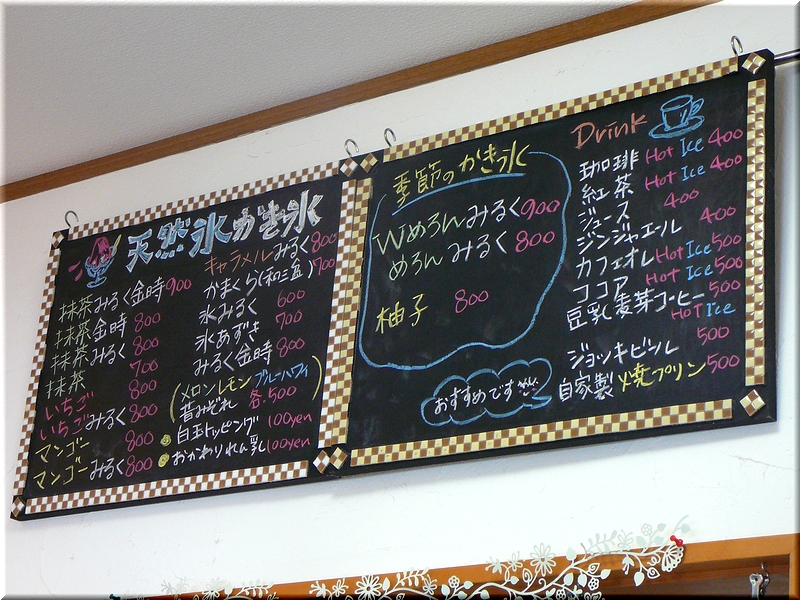 天然氷かき氷
抹茶みるく金時 900
抹茶金時 800
抹茶みるく 800
抹茶 700
いちご 800
いちごみるく 800
マンゴー 800
マンゴーみるく 800
キャラメルみるく 800
かまくら(和三盆) 700
氷みるく 600
氷あずき 700
みるく金時 800
(メロン レモン ブルーハワイ
昔みぞれ 各500)
白玉トッピング 100yen
おかわりれん乳 100yen
季節のかき氷
Wめろんみるく 900
めろんみるく 800
柚子 800
おすすめです
Drink
珈琲 Hot Ice 400
紅茶 Hot Ice 400
ジュース 400
ジンジャエール 400
カフェオレ Hot Ice 500
ココア Hot Ice 500
豆乳麦芽コーヒー 500
HOT Ice
ジョッキビール 500
自家製焼プリン 500